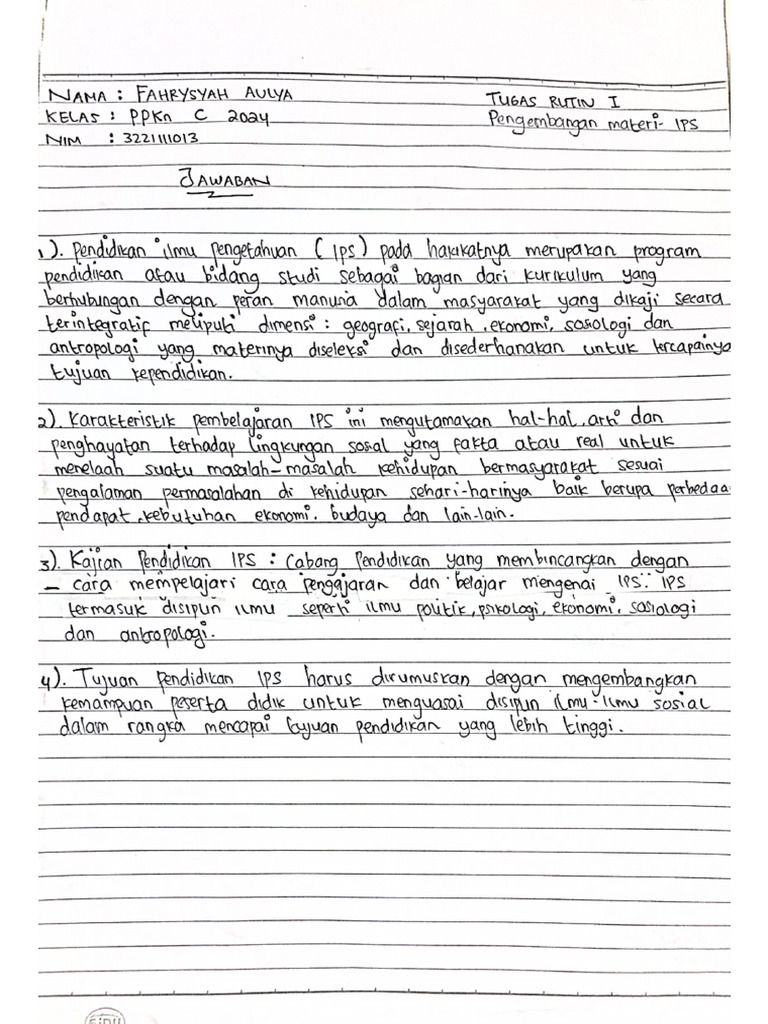 NAMA : FAHRYSYAH AULYA
TUGAS RUTIN I
KELAS : PPKn C 2024
Pengembangan materi- IPS
NIM : 3221111013
JAWABAN
1). Pendidikan ilmu pengetahuan (IPS) pada hakikatnya merupakan program
pendidikan atau bidang studi sebagai bagian dari kurikulum yang
berhubungan dengan peran manusia dalam masyarakat yang dikaji secara
terintegratif meliputi dimensi : geografi, sejarah, ekonomi, sosiologi dan
antropologi yang materinya diseleksi dan disederhanakan untuk tercapainya
tujuan kependidikan.
2). Karakteristik pembelajaran IPS ini mengutamakan hal-hal, arti dan
penghayatan terhadap lingkungan sosial yang fakta atau real untuk
menelaah suatu masalah-masalah kehidupan bermasyarakat sesuai
pengalaman permasalahan di kehidupan sehari-harinya baik berupa perbedaa
pendapat, kebutuhan ekonomi, budaya dan lain-lain.
3). Kajian Pendidikan IPS : Cabang Pendidikan yang membincangkan dengan
- cara mempelajari cara pengajaran dan belajar mengenai IPS. IPS
termasuk disipun ilmu seperti ilmu politik, psikologi, ekonomi, sosiologi
dan antropologi.
4). Tujuan pendidikan IPS harus dirumuskan dengan mengembangkan
kemampuan peserta didik untuk menguasai disipun ilmu-ilmu sosial
dalam rangka mencapai tujuan pendidikan yang lebih tinggi.